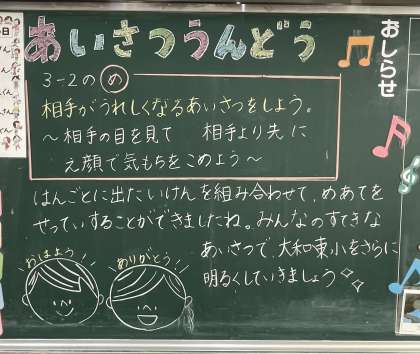 あいさつうんどう
おしらせ
3-2の㋱
相手がうれしくなるあいさつをしよう。
～相手の目を見て 相手より先に
え顔で気もちをこめよう～
はんごとに出たいけんを組み合わせて、めあてを
せっていすることができましたね。みんなのすてきな
あいさつで、大和東小をさらに
明るくしていきましょう
おはよう
ありがとう